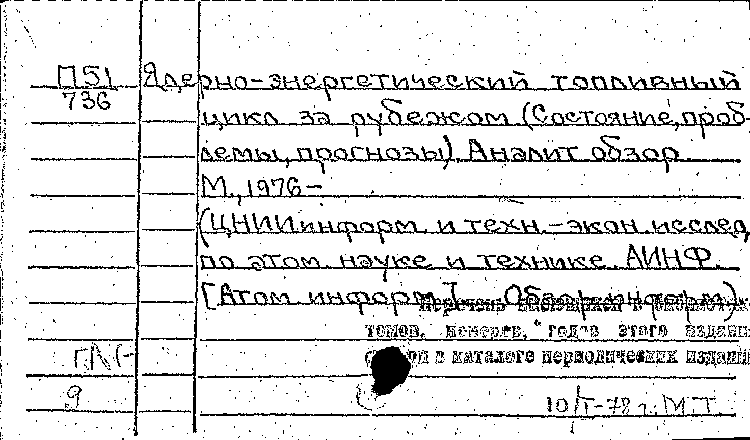 П51 Ядерно-энергетический топливный
736
цикл за рубежом (Состояние, проб-
лемы, прогнозы). Аналит обзор
М., 1976-
(ЦНИИинформ и техн.-экон. исслед
по атом науке и технике АИНФ.
[Атоминформ]. Обзор. информ)
Перечень имеющихся в библиотеке
томов, номеров, годов этого издани
в каталоге периодических издани
9
10/I-78 г. М.Т.